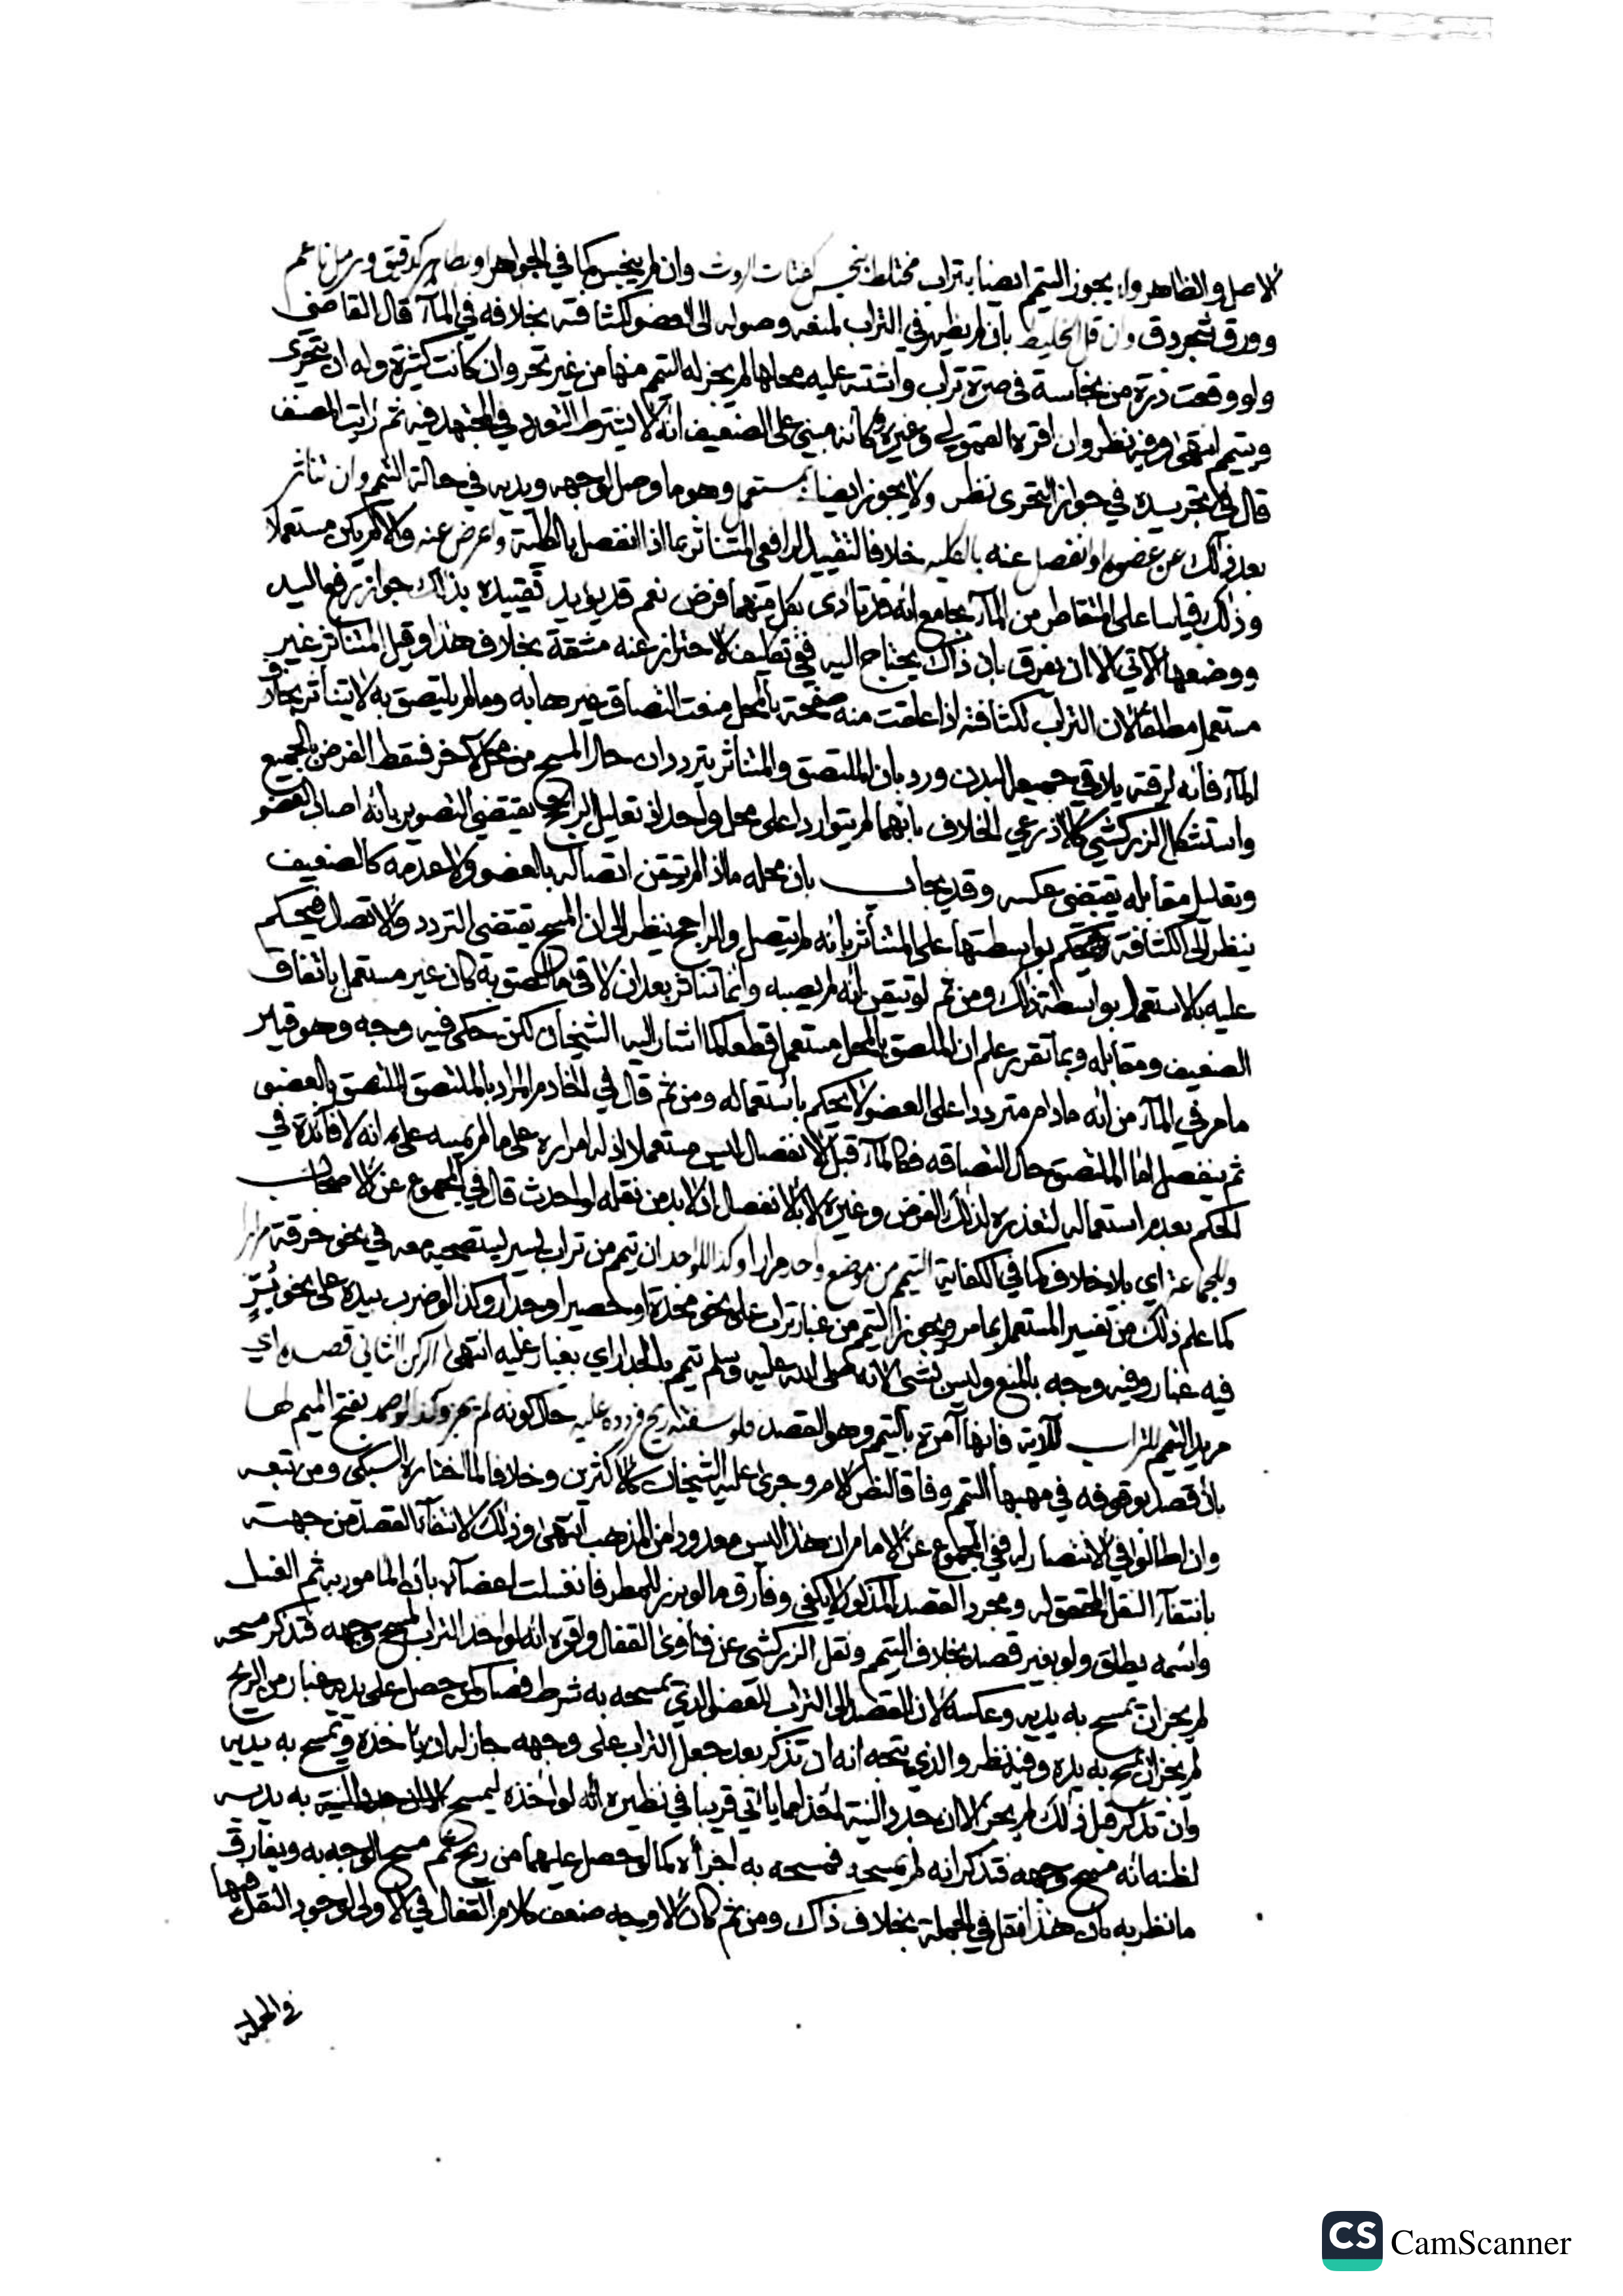 الاصل والظاهر ولا يجوز التيمم ايضا بتراب مختلط بنجس كفتات الروث وان لم ينجس كما في الجواهر او بطاهر كدقيق ورمل ناعم
وورق شجر دق وان قل الخليط بان لم يظهر في التراب لمنعه وصوله الى العضو لكثافته بخلافه في المآء قال القاضي
ولو وقعت ذرة من نجاسة في صبرة تراب واشتبه عليه محلها لم يجز له التيمم منها من غير تحر وان كانت كثيرة وله ان يتحرى
ويتيمم انتهى وفيه نظر وان اقره القمولي وغيره وكانه مبني على الضعيف انه لا يشترط التعدد في المجتهد فيه ثم رايت المصنف
قال في تجريده في جواز التحرى نظر ولا يجوز ايضا بمستعمل وهو ما وصل لوجهه ويديه في حالة التيمم وان تناثر
بعد ذلك عن عضوه وانفصل عنه بالكليه خلافا لتقييد الرافعي المتناثر بما اذا انفصل بالكلية واعرض عنه والا لم يكن مستعملا
وذلك قياسا على المتقاطر من المآء بجامع انه قد تادى بكل منهما فرض نعم قد يويد تقييده بذلك جواز رفع اليد
ووضعها الآتي الا ان يفرق بان ذاك يحتاج اليه ففي تكليف الاحتراز عنه مشقة بخلاف هذا وقيل المتناثر غير
مستعمل مطلقا لان التراب لكثافته اذا علقت منه صفحة بالمحل منعت التصاق غيرها به وما لم يلتصق به لا يتناثر بخلاف
المآء فانه لرقته يلاقي جميع البدن ورد بان الملتصق والمتناثر يترددان حال المسح من محل لآخر فسقط الفرض بالجميع
واستشكل الزركشي كالاذرعي الخلاف بانهما لم يتواردا على محل واحد اذ تعليل الراجح يقتضي التصوير بانه اصاب العضو
وتعليل مقابله يقتضى عكسه وقد يجاب بان محله ما اذا لم يتيقن اتصاله بالعضو ولا عدمه كالضعيف
ينظر الى الكثافة فيحكم بواسطتها على المتناثر بانه لم يتصل والراجح ينظر الى ان المسح يقتضى التردد والاتصل فيحكم
عليه بالاستعمال بواسطة ذلك ومن ثم لو تيقن انه لم يصبه وانما تناثر بعد ان لاقى ما التصق به كان غير مستعمل باتفاق
الضعيف ومقابله وبما تقرر علم ان الملصق بالمحل مستعمل قطعا كما اشار اليه الشيخان لكن حكى فيه وجه وهو قياس
ما مر في المآء من انه ما دام مترددا على العضو لا يحكم باستعماله ومن ثم قال في الخادم المراد بالملتصق الملتصق بالعضو
ثم ينفصل اما الملتصق حال التصاقه فكالمآء قبل الانفصال ليس مستعملا اذ له امراره على ما لم يمسه على انه لا فائدة في
الحكم بعدم استعماله لتعذره لذلك الفرض وغيره الا بالانفصال اذ لا بد من نقله لو احدث قال في المجموع عن الاصحاب
وللجماعة اي بلا خلاف كما في الكفاية التيمم من موضع واحد مرارا وكذا للواحد ان تيمم من تراب يسير يستصحبه معه في نحو خرقة مرارا
كما علم ذلك من تفسير المستعمل بما مر ويجوز التيمم من غبار تراب على نحو مخدة او حصير او جدار وكذا لو ضرب بيده على نحو بُرّ
فيه غبار وفيه وجه بالمنع وليس بشى لانه صلى الله عليه وسلم تيمم بالجدار اي بغبار عليه انتهى الركن الثاني قصده اي
مريد التيمم للتراب للآية فانها آمرة بالتيمم وهو القصد فلو سفته ريح فردده عليه حال كونه لم يجز وكذا لو صمد بفتح الميم لها
بان قصد بوقوفه في مهبها التيمم وفاقا لنص الام وجرى عليه الشيخان كالاكثرين وخلافا لما اختاره السبكى ومن تبعه
وان اطالوا في الانتصار له ففي المجموع عن الامام ان هذا ليس معدودا من المذهب انتهى وذلك لانتفآء القصد من جهته
بانتفآء النقل المحقق له ومجرد القصد المذكور لا يكفي وفارق ما لو برز للمطر فانغسلت اعضآؤه بان المامور به ثم الغسل
واسمه يطلق ولو بغير قصد بخلاف التيمم ونقل الزركشى عن فتاوى القفال واقره انه لو اخذ التراب ليمسح وجهه فتذكر مسحه
لم يجز ان يمسح به يديه وعكسه لان القصد الى التراب للعضو الذي يمسحه به شرط فصار كمن حصل على يديه غبار من الريح
لم يجز ان يمسح به يده وفيه نظر والذي يتجه انه ان تذكر بعد جعل التراب على وجهه جاز له ان ياخذه ويمسح به يديه
وان تذكر قبل ذلك لم يجز الا ان جدد النية لاخذ لما ياتي قريبا في نظيره انه لو اخذه ليمسح به يديه
لظنه انه مسح وجهه فتذكر انه لم يمسحه فمسحه به اجزأه كما لو حصل عليهما من ريح ثم مسح الوجه به ويفارق
ما نظر به بان هذا نقل في الجملة بخلاف ذاك ومن ثم كان الاوجه ضعف كلام القفال في الاولى لوجود النقل فيها
في الجملة
CS CamScanner